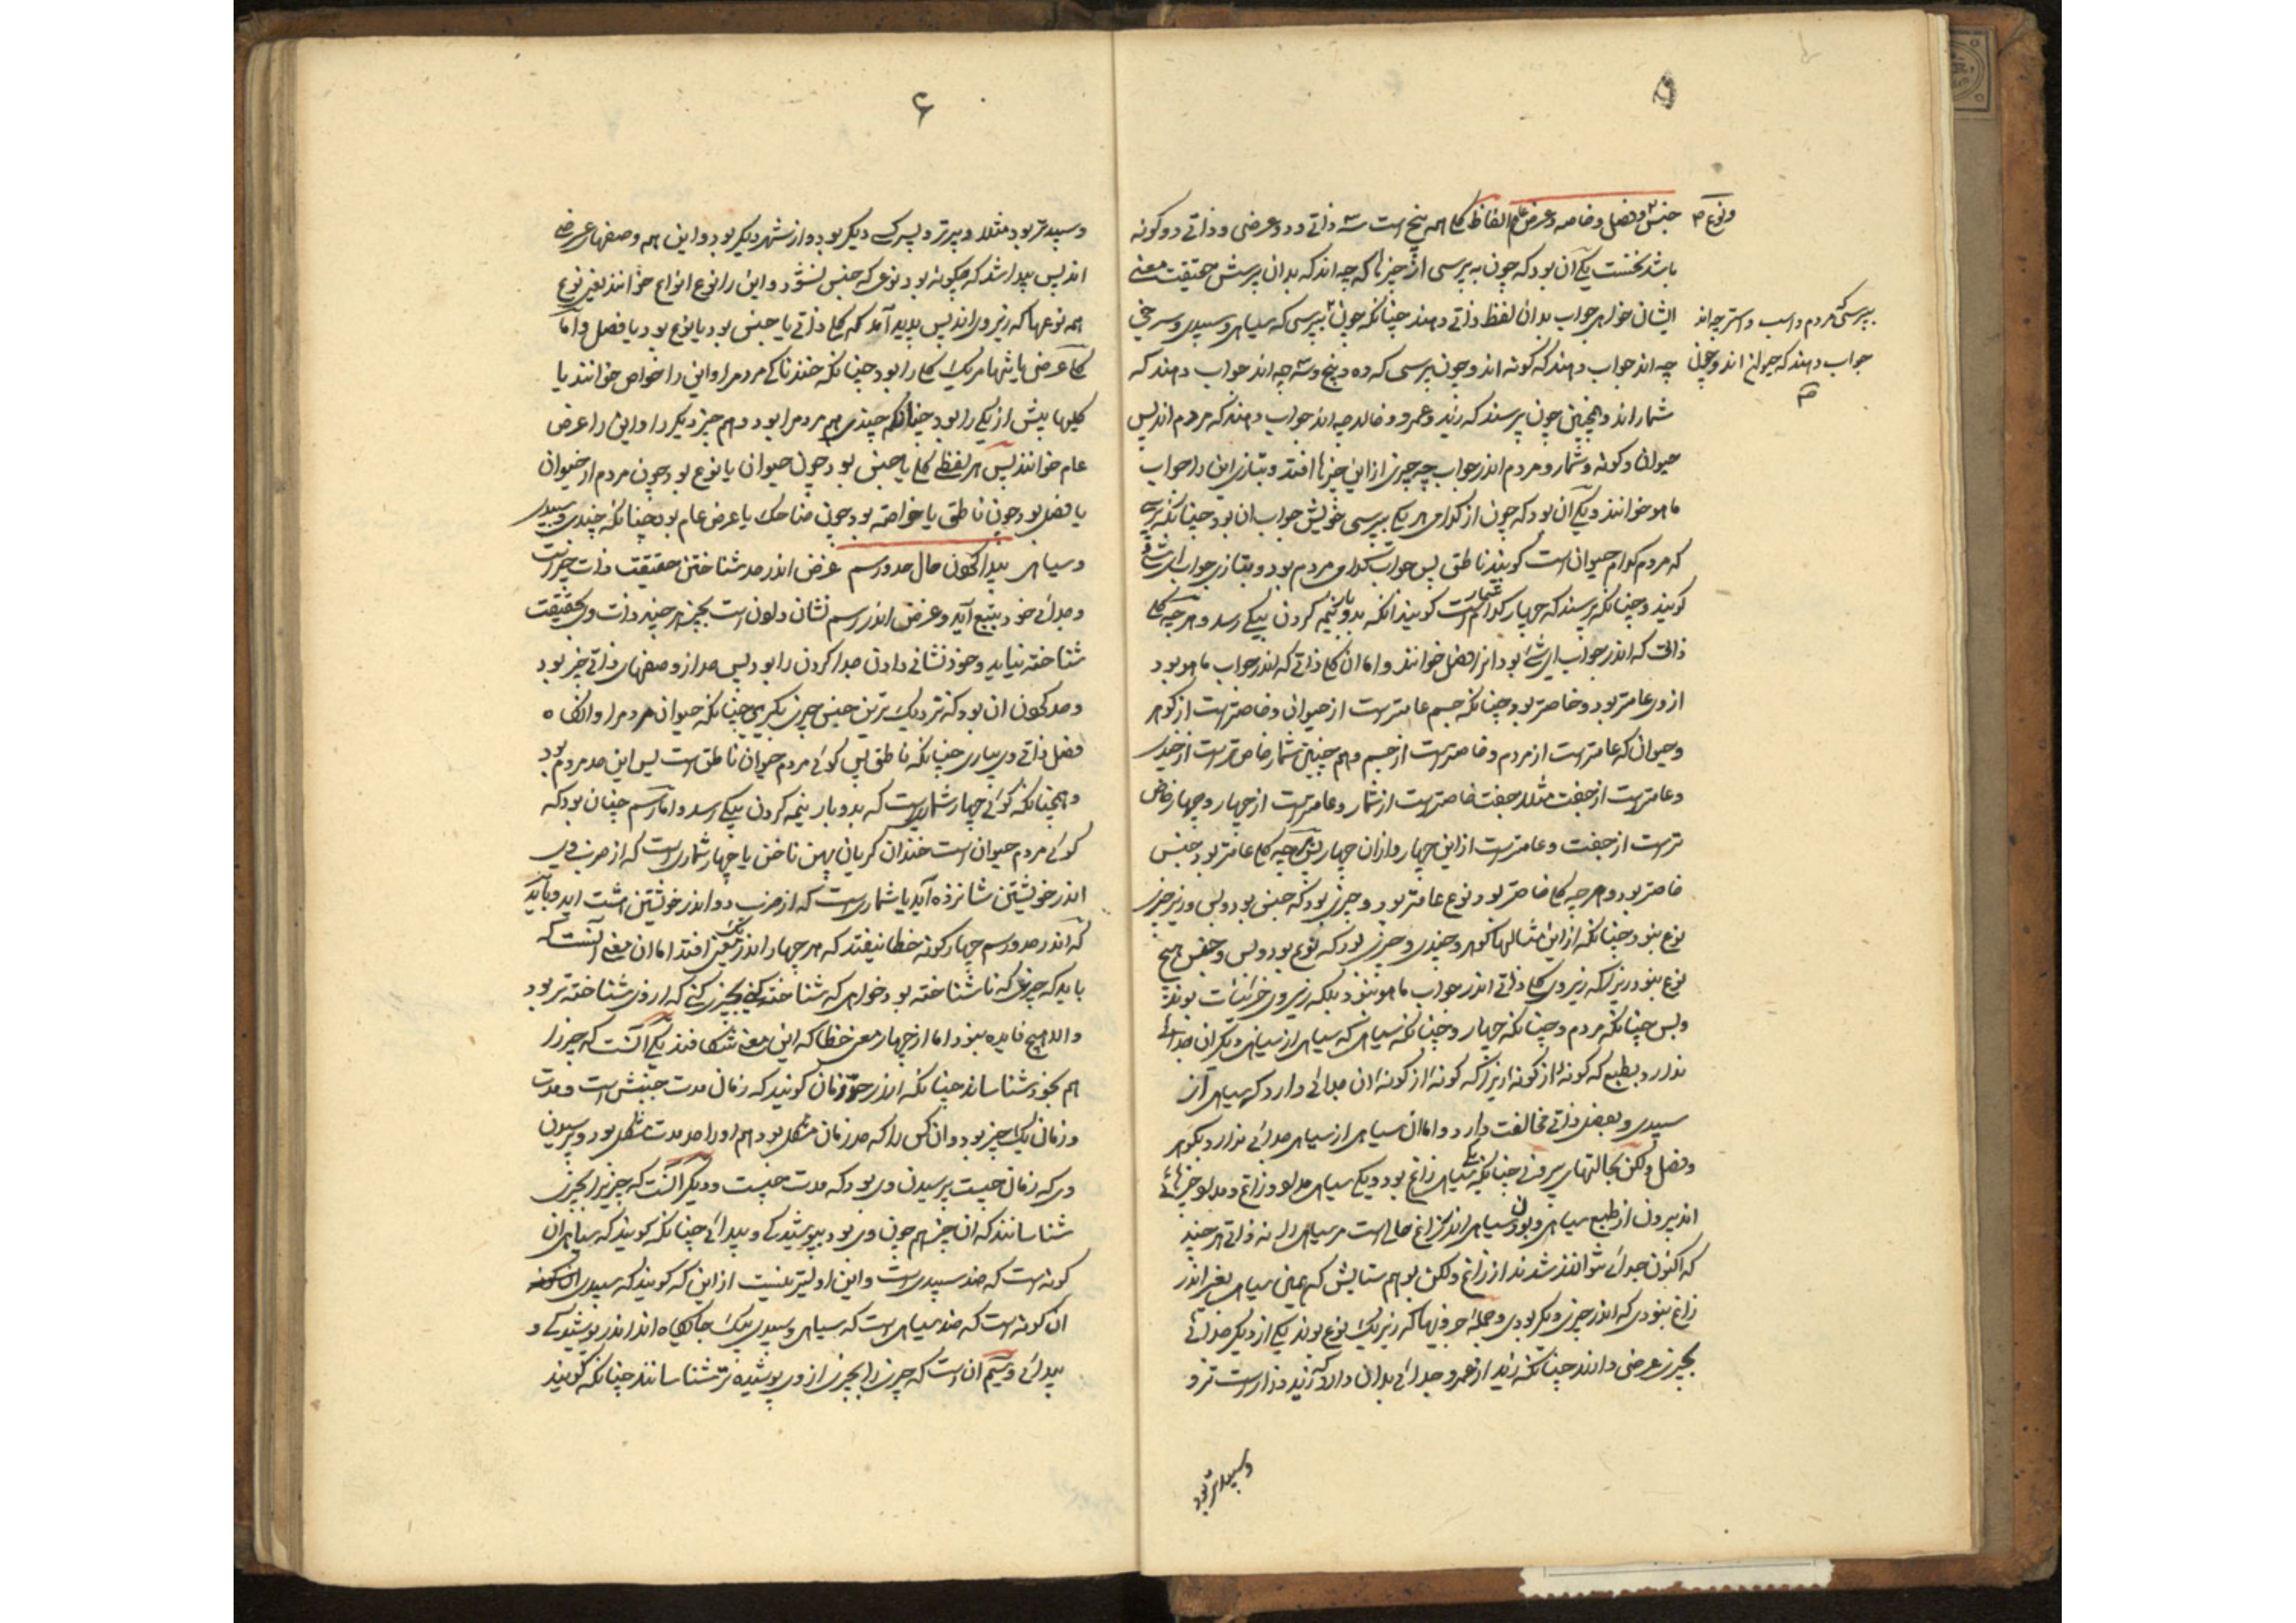 ۵
جنس و فصل و خاصه و عرض عام الفاظ کلی همه پنج است سه ذاتی و دو عرضی و ذاتی دو گونه
ونوع
باشد نخست یکی آن بود که چون به پرسی از چیزها که چه اند که بدان پرسش حقیقت معنی
ایشان خواهی جواب بدان لفظ ذاتی دهند چنانکه چون بپرسی که سیاهی و سپیدی و سرخی
بپرسی که مردم و اسب و استر چه اند
چه اند جواب دهند که گونه اند و چون بپرسی که ده و پنج و سه چه اند جواب دهند که
جواب دهند که حیوان اند و چون
شمار اند و همچنین چون پرسند که زید و عمرو و خالد چه اند جواب دهند که مردم اند پس
حیوان و گونه و شمار و مردم اندر جواب چه چیزی ازاین چیزها افتد و بتازی این را جواب
ماهو خوانند و یکی آن بود که چون از کدامی هر یکی بپرسی خویش جواب ان بود چنانکه پرسی
که مردم کدام حیوان است گویند ناطق پس جواب کدامی مردم بود و بتازی جواب ای شی
گویند و چنانکه پرسند که چهار کدام شمار است گویند انکه بدو بار نیمه کردن بیکی رسد و هر چه کلی
ذاتی که اندر جواب ای شی بود انرا فصل خوانند و اما ان کلی ذاتی که اندر جواب ماهو بود
از وی عامتر بود و خاصتر بود چنانکه جسم عامترست از حیوان و خاصترست از گوهر
و حیوان که عامترست از مردم و خاصترست از جسم و هم چنین شمار خاص ترست از چندی
و عامترست از جفت مثلا و جفت خاصترست از شمار و عامترست از چهار و چهار خاص
ترست از جفت و عامترست از این چهار و ازان چهار پس هر چه کلی عامتر بود جنس
خاصتر بود و هر چه کلی خاصتر بود نوع عامتر بود و چیزی بود که جنس بود و بس و زیر چیزی
نوع بنود چنانکه ازاین مثالها گوهر و چندی و چیزی بود که نوع بود و بس و جنس هیچ
نوع بنود زیراکه زیر وی کلی ذاتی اندر جواب ماهو بنود بلکه زیر وی جزئیات بوند
و بس چنانکه مردم و چنانکه چهار و چنانکه سیاهی که سیاهی از سیاهی دیگر ان جدائی
ندارد بطبع که گونه از گونه زیراکه گونه از گونه ان جدائی دارد که سیاهی از
سپیدی و بفصل ذاتی مخالفت دارد و اما ان سیاهی از سیاهی جدائی ندارد بگوهر
و فصل و لکن بحالتهای بیرونی چنانکه یکی سیاهی زاغ بود و یکی سیاهی مداد و زاغ و مداد چیزهائی
اند بیرون از طبع سیاهی و بودن سیاهی اندر زاغ حالی است مر سیاهی را نه ذاتی هر چند
که اکنون جدائی نتوانند شدند از زاغ و لکن بوهم شایستی که همین سیاهی بعینه اندر
زاغ بنودی که اندر چیزی دیگر بودی و جمله جزویها که زیر یک نوع بوند یکی از دیگر جدائی
بچیزی عرضی دارند چنانکه زید از عمرو جدائی بدان دارد که زید درازترست و
وسپیدتر بود
۶
و سپیدتر بود مثلا و پیرتر و پسر کسی دیگر بود و از شهر دیگر بود و این همه وصفهای عرضی
اند پس پیدا شد که چگونه بود نوعی که جنس نشود و این را نوع انواع خوانند یعنی نوع
همه نوعها که زیر وی اند پس پدید آمد که کلی ذاتی یا جنس بود یا نوع بود یا فصل و اما
کلی عرضی یا تنها مر یک کلی را بود چنانکه خندناکی مردم را و این را خواص خوانند یا
کلیها بیش از یکی را بود چنانکه جنبندگی هم مردم را بود و هم چیز دیگر را و این را عرض
عام خوانند پس هر لفظی کلی یا جنس بود چون حیوان یا نوع بود چون مردم از حیوان
یا فصل بود چون ناطق یا خاصه بود چون ضاحک یا عرض عام بود چنانکه چندی و سپیدی
و سیاهی پیدا کردن حال حد و رسم غرض اندر حد شناختن حقیقت ذات چیز است
و جدائی خود بتبع آید و غرض اندر رسم نشان دادن است بچیز هر چند ذات وی بحقیقت
شناخته نیاید و خود نشانی دادن جدا کردن را بود پس حد از وصفهای ذاتی چیز بود
و حد کردن ان بود که نزدیک ترین جنس چیزی بگیری چنانکه حیوان مردم را و انگاه
فصل ذاتی وی بیاری چنانکه ناطق پس گوئی مردم حیوان ناطق است پس این حد مردم بود
و همچنانکه گوئی چهار شماری است که بدو بار نیمه کردن بیکی رسد و اما رسم چنان بود که
گوئی مردم حیوان است خندان گریان پهن ناخن یا چهار شماری است که از ضرب وی
اندر خویشتن شانزده آید یا شماری است که از ضرب دو اندر خویشتن آید و باید
که اندر حد و رسم چهار گونه خطا نیفتد که هر چهار اندر یک معنی افتد اما ان معنی آنست که
باید که چیزی که ناشناخته بود خواهی که شناخته کنی بچیزی کنی که از وی شناخته تر بود
و الا هیچ فایده بنود اما از چهار معنی خطا که این معنی شکافند یکی آنست که چیز را
هم بخود شناسانند چنانکه اندر حد زمان گویند که زمان مدت جنبش است و مدت
و زمان یک چیز بود و ان کس را که حد زمان مشکل بود هم او را حد مدت مشکل بود و پرسیدن
وی که زمان چیست پرسیدن وی بود که مدت چیست و دیگر آنست که چیزی را بچیزی
شناسانند که ان چیز هم چون وی بود بپوشیدگی و پیدائی چنانکه گویند که سیاهی ان
گونه است که ضد سپیدی است و این اولیتر نیست از این که گویند که سپیدی
ان گونه است که ضد سیاهی است که سیاهی و سپیدی بیک جایگاه اند اندر پوشیدگی و
پیدائی و سیم ان است که چیزی را بچیزی از وی پوشیده تر شناسانند چنانکه گویند